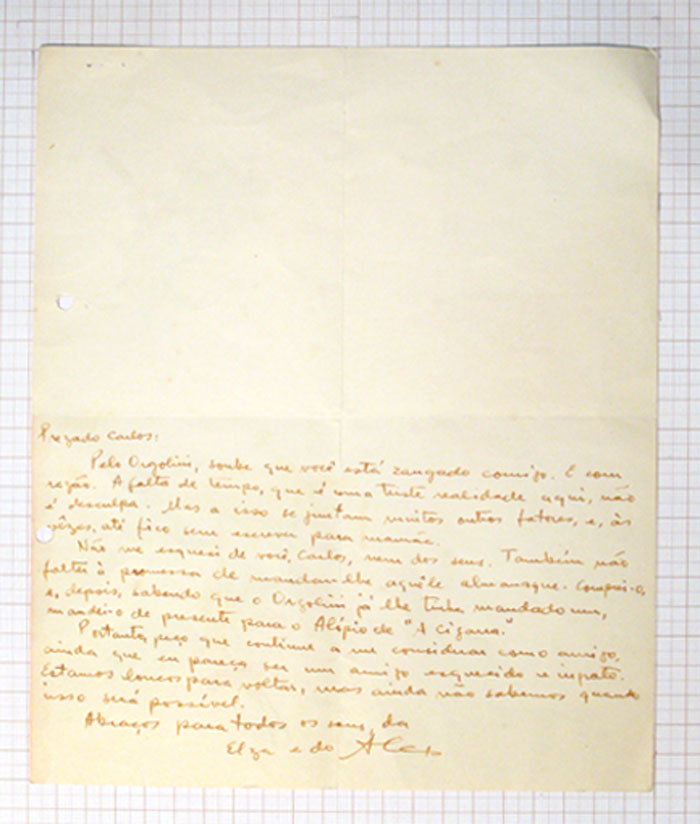 Prezado Carlos:
Pelo Orgolini, soube que você está zangado comigo. E com
razão. A falta de tempo, que é uma triste realidade aqui, não
é desculpa. Mas a isso se juntam muitos outros fatores, e, às
vêzes, até fico sem escrever para mamãe.
Não me esqueci de você, Carlos, nem dos seus. Também não
faltei à promessa de mandar-lhe aquêle almanaque. Comprei-o,
e, depois, sabendo que o Orgolini já lhe tinha mandado um,
mandei-o de presente para o Alípio de "A Cigarra".
Portanto, peço que continue a me considerar como amigo,
ainda que eu pareça ser um amigo esquecido e ingrato.
Estamos loucos para voltar, mas ainda não sabemos quando
isso será possível.
Abraços para todos os seus, da
Elza e do Alex